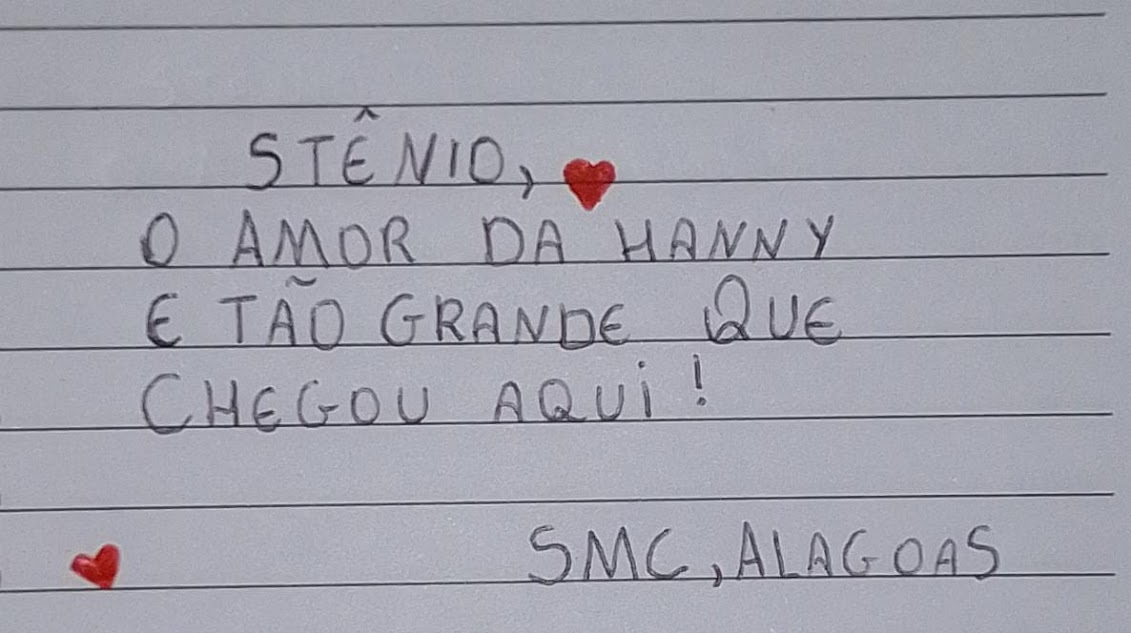 STÊNIO,
O AMOR DA HANNY
E TÃO GRANDE QUE
CHEGOU AQUI!
SMC, ALAGOAS